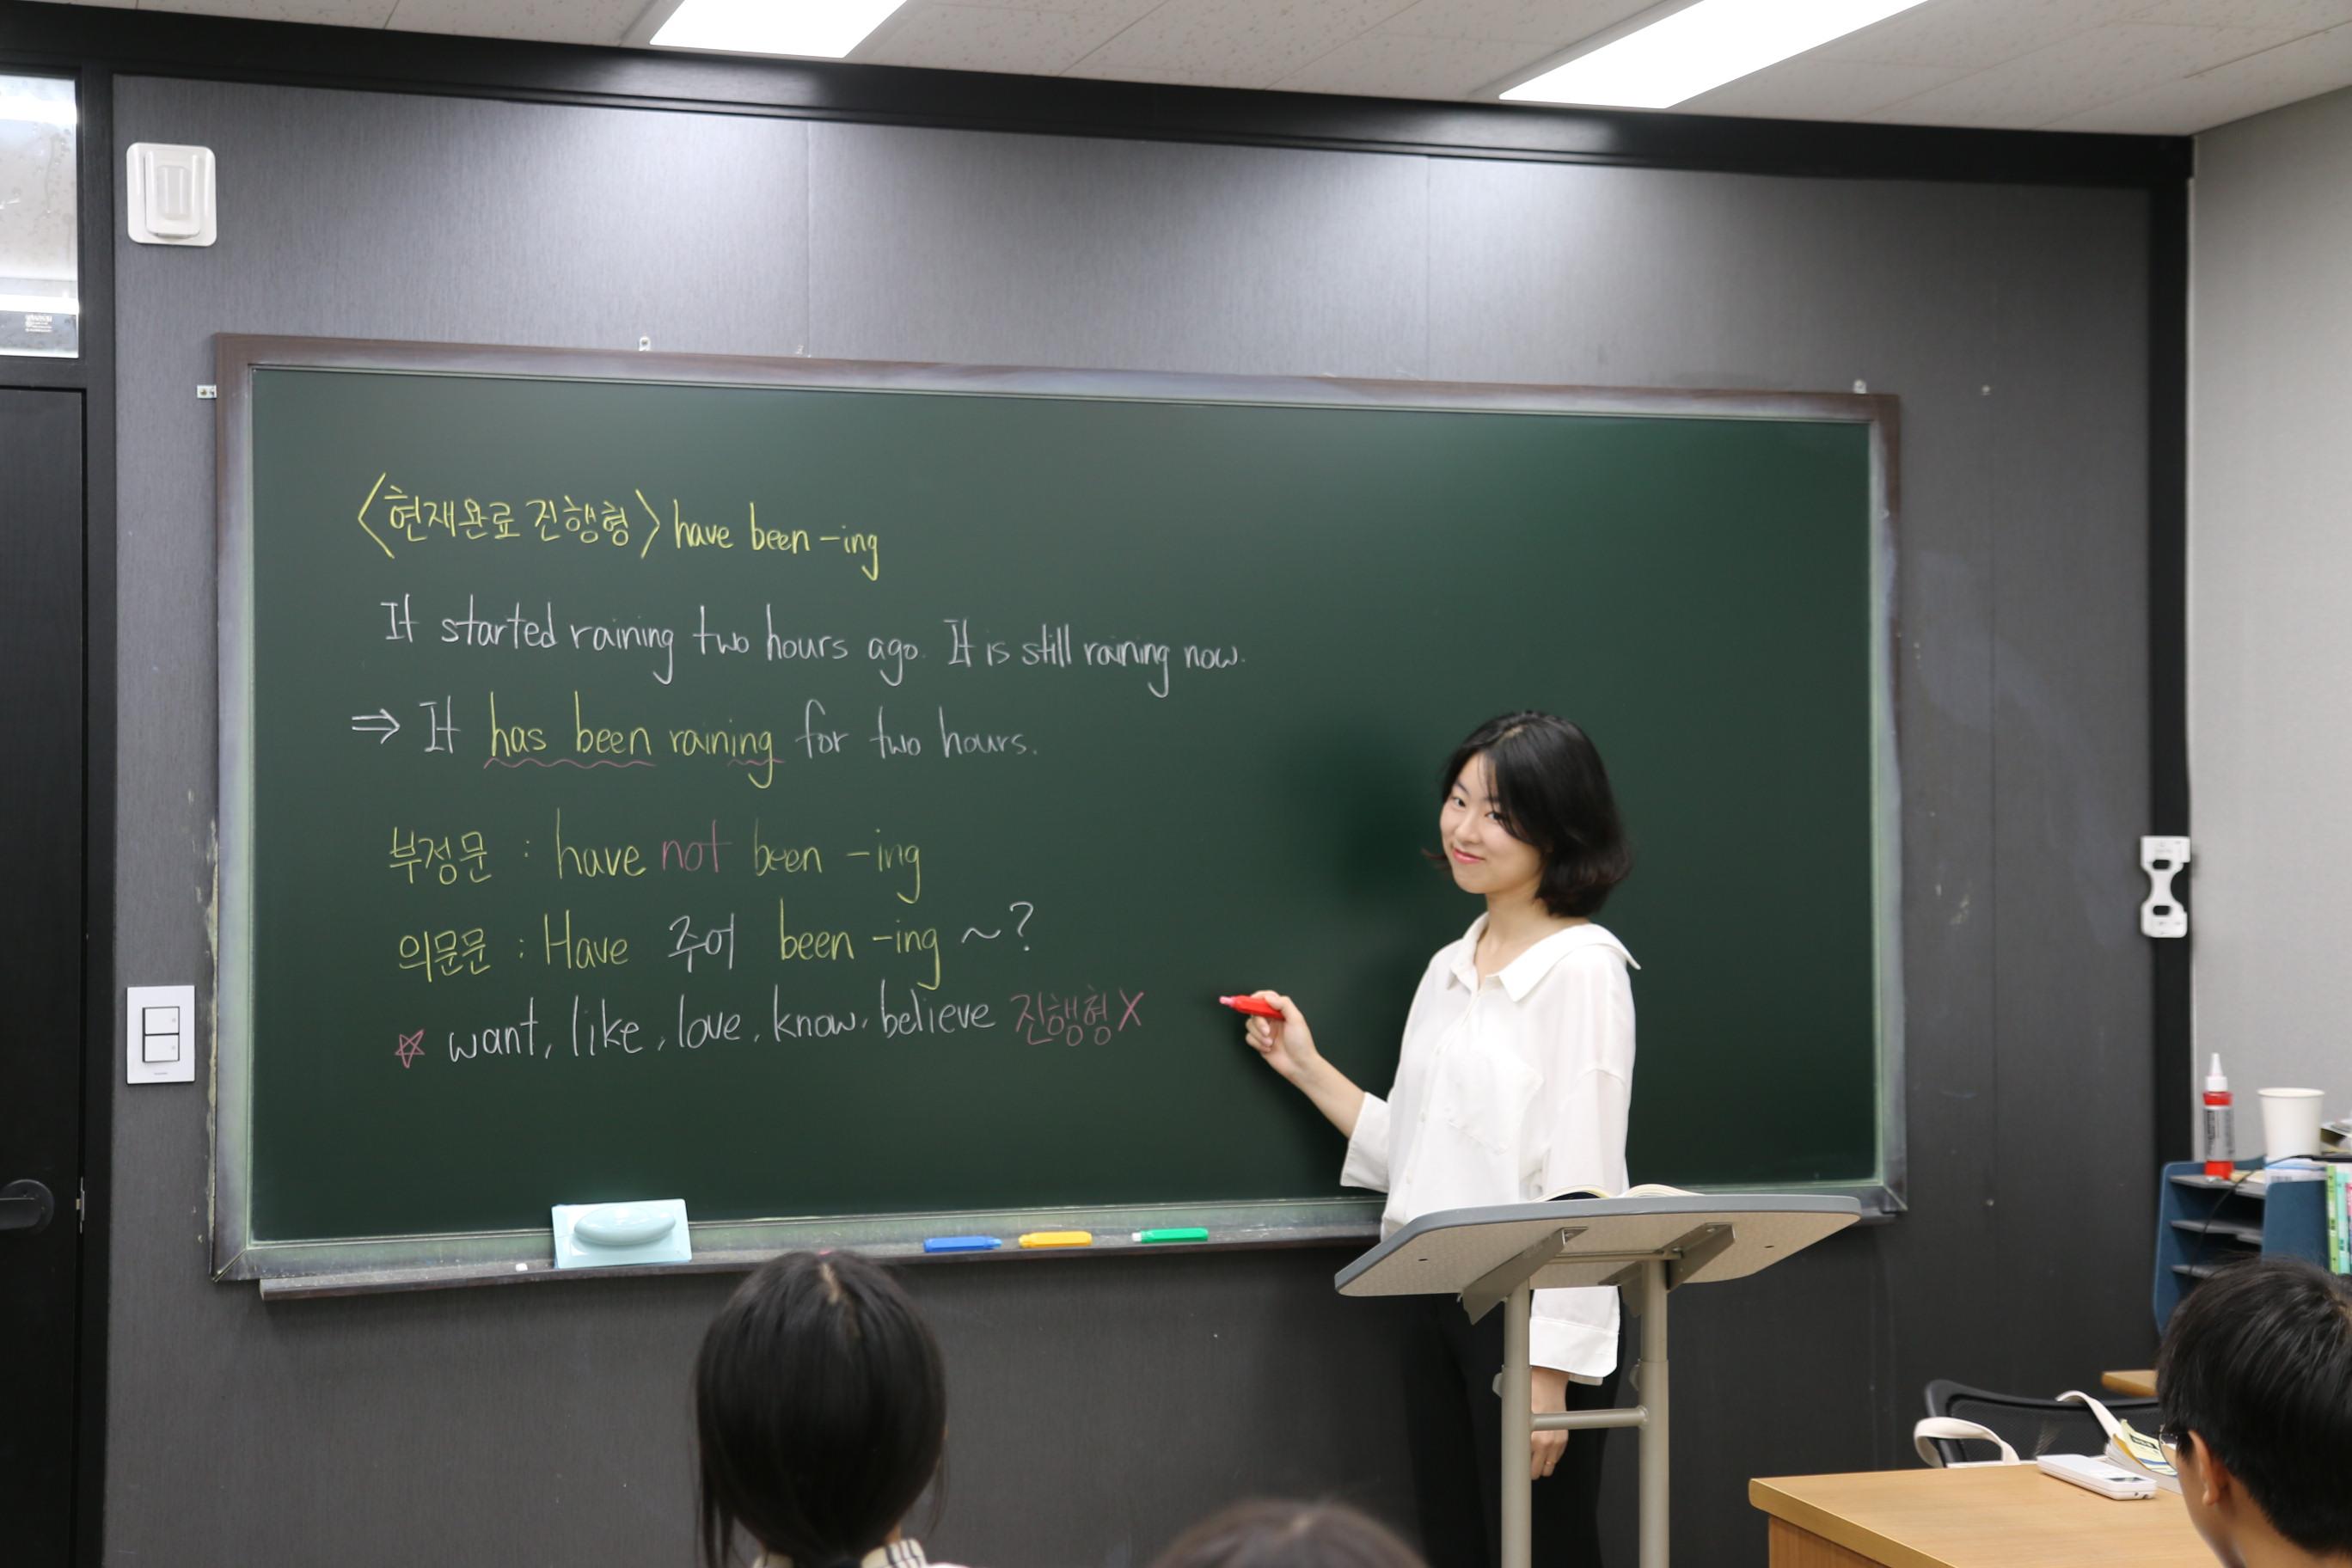 <현재완료 진행형> have been -ing
It started raining two hours ago. It is still raining now.
⇒ It has been raining for two hours.
부정문 : have not been -ing
의문문 : Have 주어 been -ing ~?
☆ want, like, love, know, believe 진행형 X